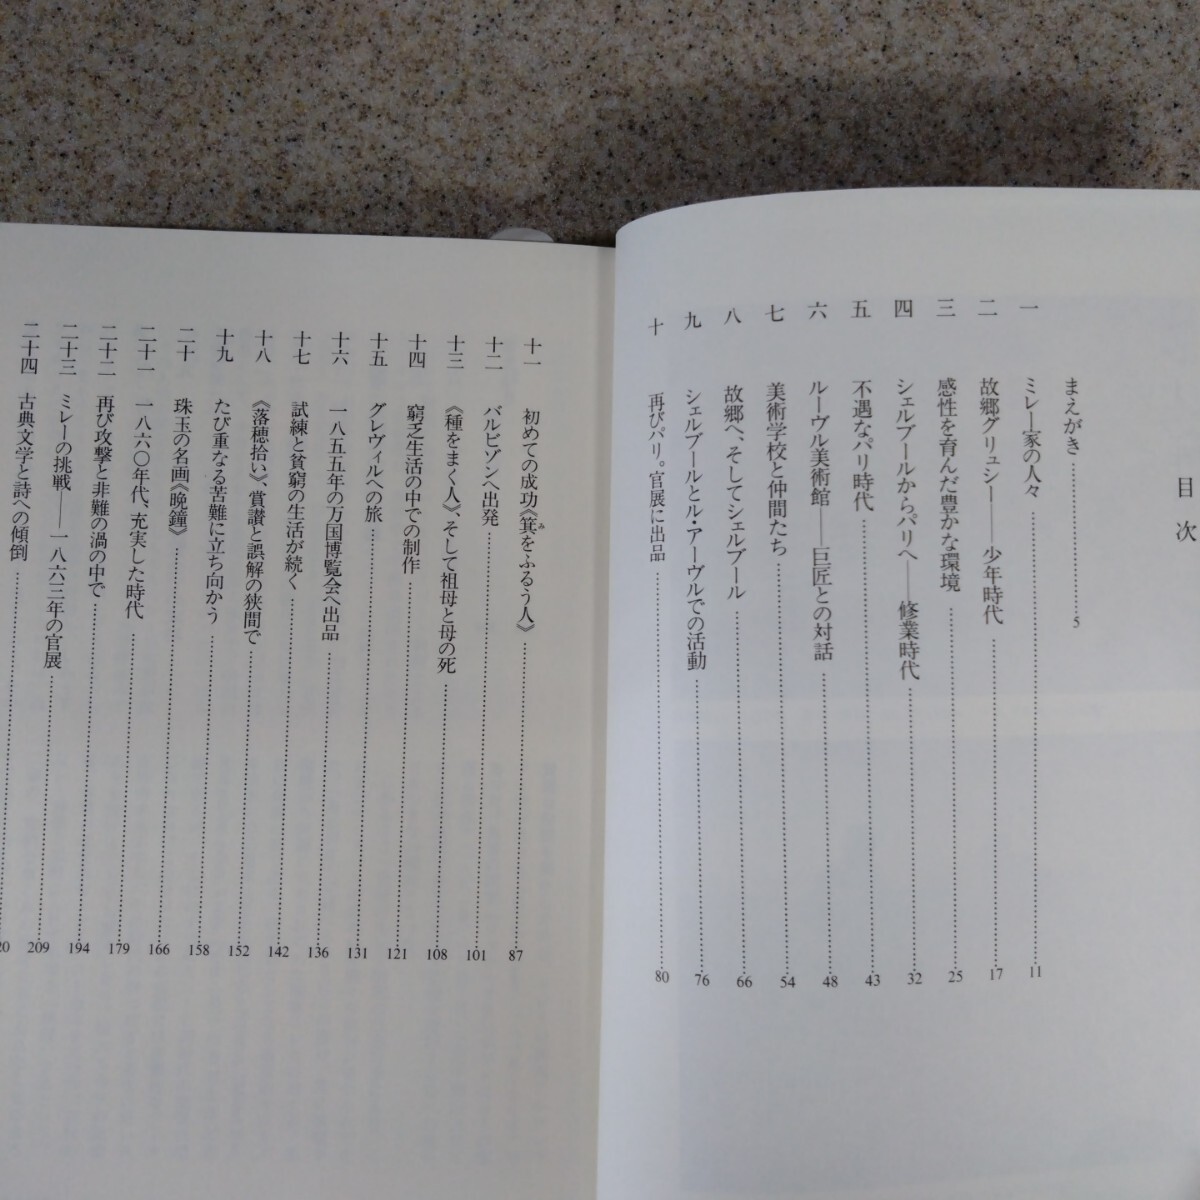 目次
まえがき 5
一 ミレー家の人々 11
二 故郷グリュシー――少年時代 17
三 感性を育んだ豊かな環境 25
四 シェルブールからパリへ――修業時代 32
五 不遇なパリ時代 43
六 ルーヴル美術館――巨匠との対話 48
七 美術学校と仲間たち 54
八 故郷へ、そしてシェルブール 66
九 シェルブールとル・アーヴルでの活動 76
十 再びパリ。官展に出品 80
十一 初めての成功《箕をふるう人》 87
十二 バルビゾンへ出発 101
十三 《種をまく人》、そして祖母と母の死 108
十四 窮乏生活の中での制作 121
十五 グレヴィルへの旅 131
十六 一八五五年の万国博覧会へ出品 136
十七 試練と貧窮の生活が続く 142
十八 《落穂拾い》、賞讃と誤解の狭間で 152
十九 たび重なる苦難に立ち向かう 158
二十 珠玉の名画《晩鐘》 166
二十一 一八六〇年代、充実した時代 179
二十二 再び攻撃と非難の渦の中で 194
二十三 ミレーの挑戦――一八六三年の官展 209
二十四 古典文学と詩への傾倒